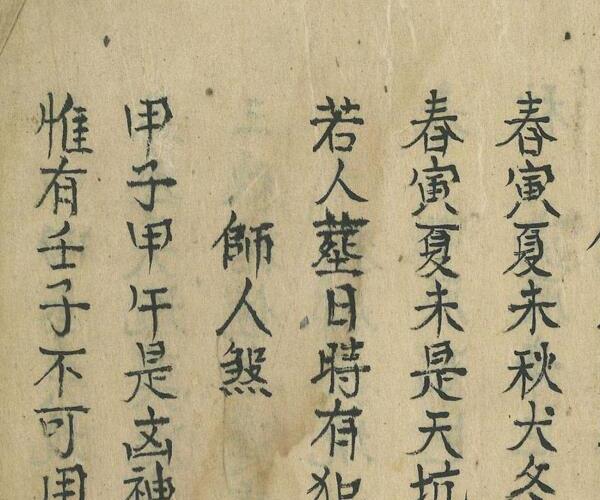 春寅夏未秋犬冬
春寅夏未是天坑
若人塟日時有犯
師人煞
甲子甲午是凶神
惟有壬子不可用